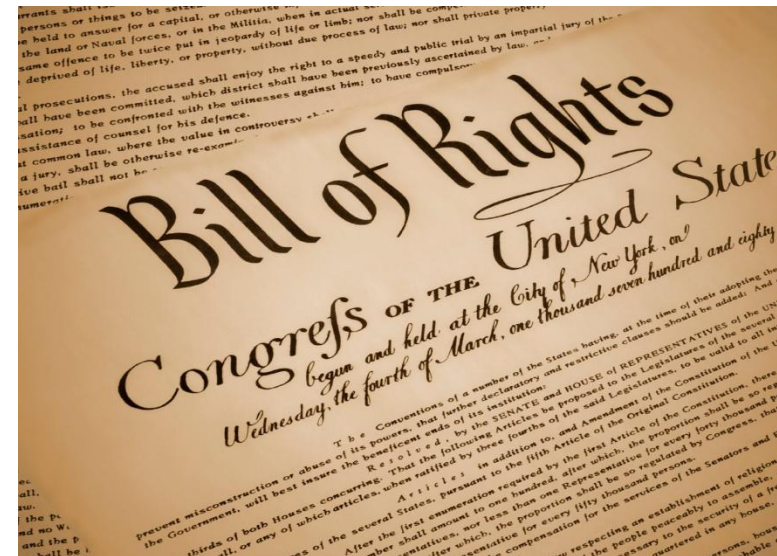 persons or things to be seized
be held to answer for a capital, or otherwise
the land or Naval forces, or in the Militia, when in actual
same offence to be twice put in jeopardy of life or limb; nor shall be
deprived of life, liberty, or property, without due process of law; nor shall private property
prosecutions, the accused shall enjoy the right to a speedy and public trial by an impartial jury of the
shall have been committed, which district shall have been previously ascertained by law,
to be confronted with the witnesses against him; to have
assistance of counsel for his defence.
common law, where the value in controversy
a jury, shall be otherwise
bail shall not be
Bill of Rights
Congreſs OF THE United State
begun and held at the City of New York, on
Wednesday, the fourth of March, one thousand seven hundred and eighty
The Conventions of a number of the States having, at the time of their adopting the
prevent misconstruction or abuse of its powers, that further declaratory and restrictive clauses should be added: And
the Government, will best insure the beneficent ends of its institution:
Resolved, by the SENATE and HOUSE of REPRESENTATIVES of the UN
thirds of both Houses concurring, That the following Articles be proposed to the Legislatures of the several
all, or any of which articles, when ratified by three fourths of the said Legislatures, to be valid to all
Articles in addition to, and Amendment of the Constitution of the U
of the several States, pursuant to the fifth Article of the Original Constitution.
After the first enumeration required by the first Article of the Constitution, there
shall amount to one hundred, after which, the proportion shall be so
nor less than one Representative for every forty thousand
after which, the proportion shall be so regulated by Congress, that
for every fifty thousand persons.
compensation for the services of the Senators and
respecting an establishment of religion
the people peaceably to assemble,
to the security of a
quartered in any house,